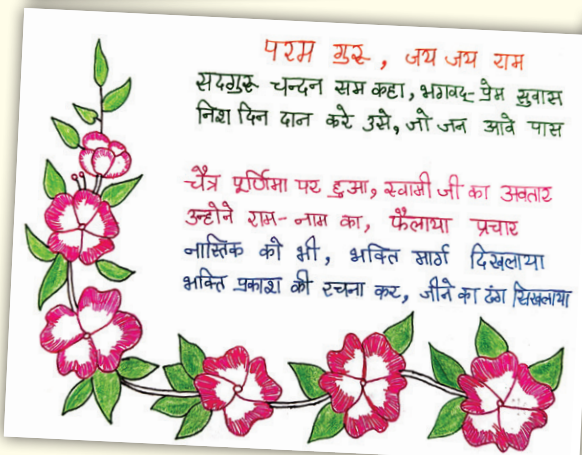 परम गुरु, जय जय राम
सदगुरु चन्दन सम कहा, भगवद-प्रेम सुवास
निश दिन दान करे उसे, जो जन आवे पास
चैत्र पूर्णिमा पर हुआ, स्वामी जी का अवतार
उन्होने राम-नाम का, फैलाया प्रचार
नास्तिक को भी, भक्ति मार्ग दिखलाया
भक्ति प्रकाश की रचना कर, जीने का ढंग सिखलाया